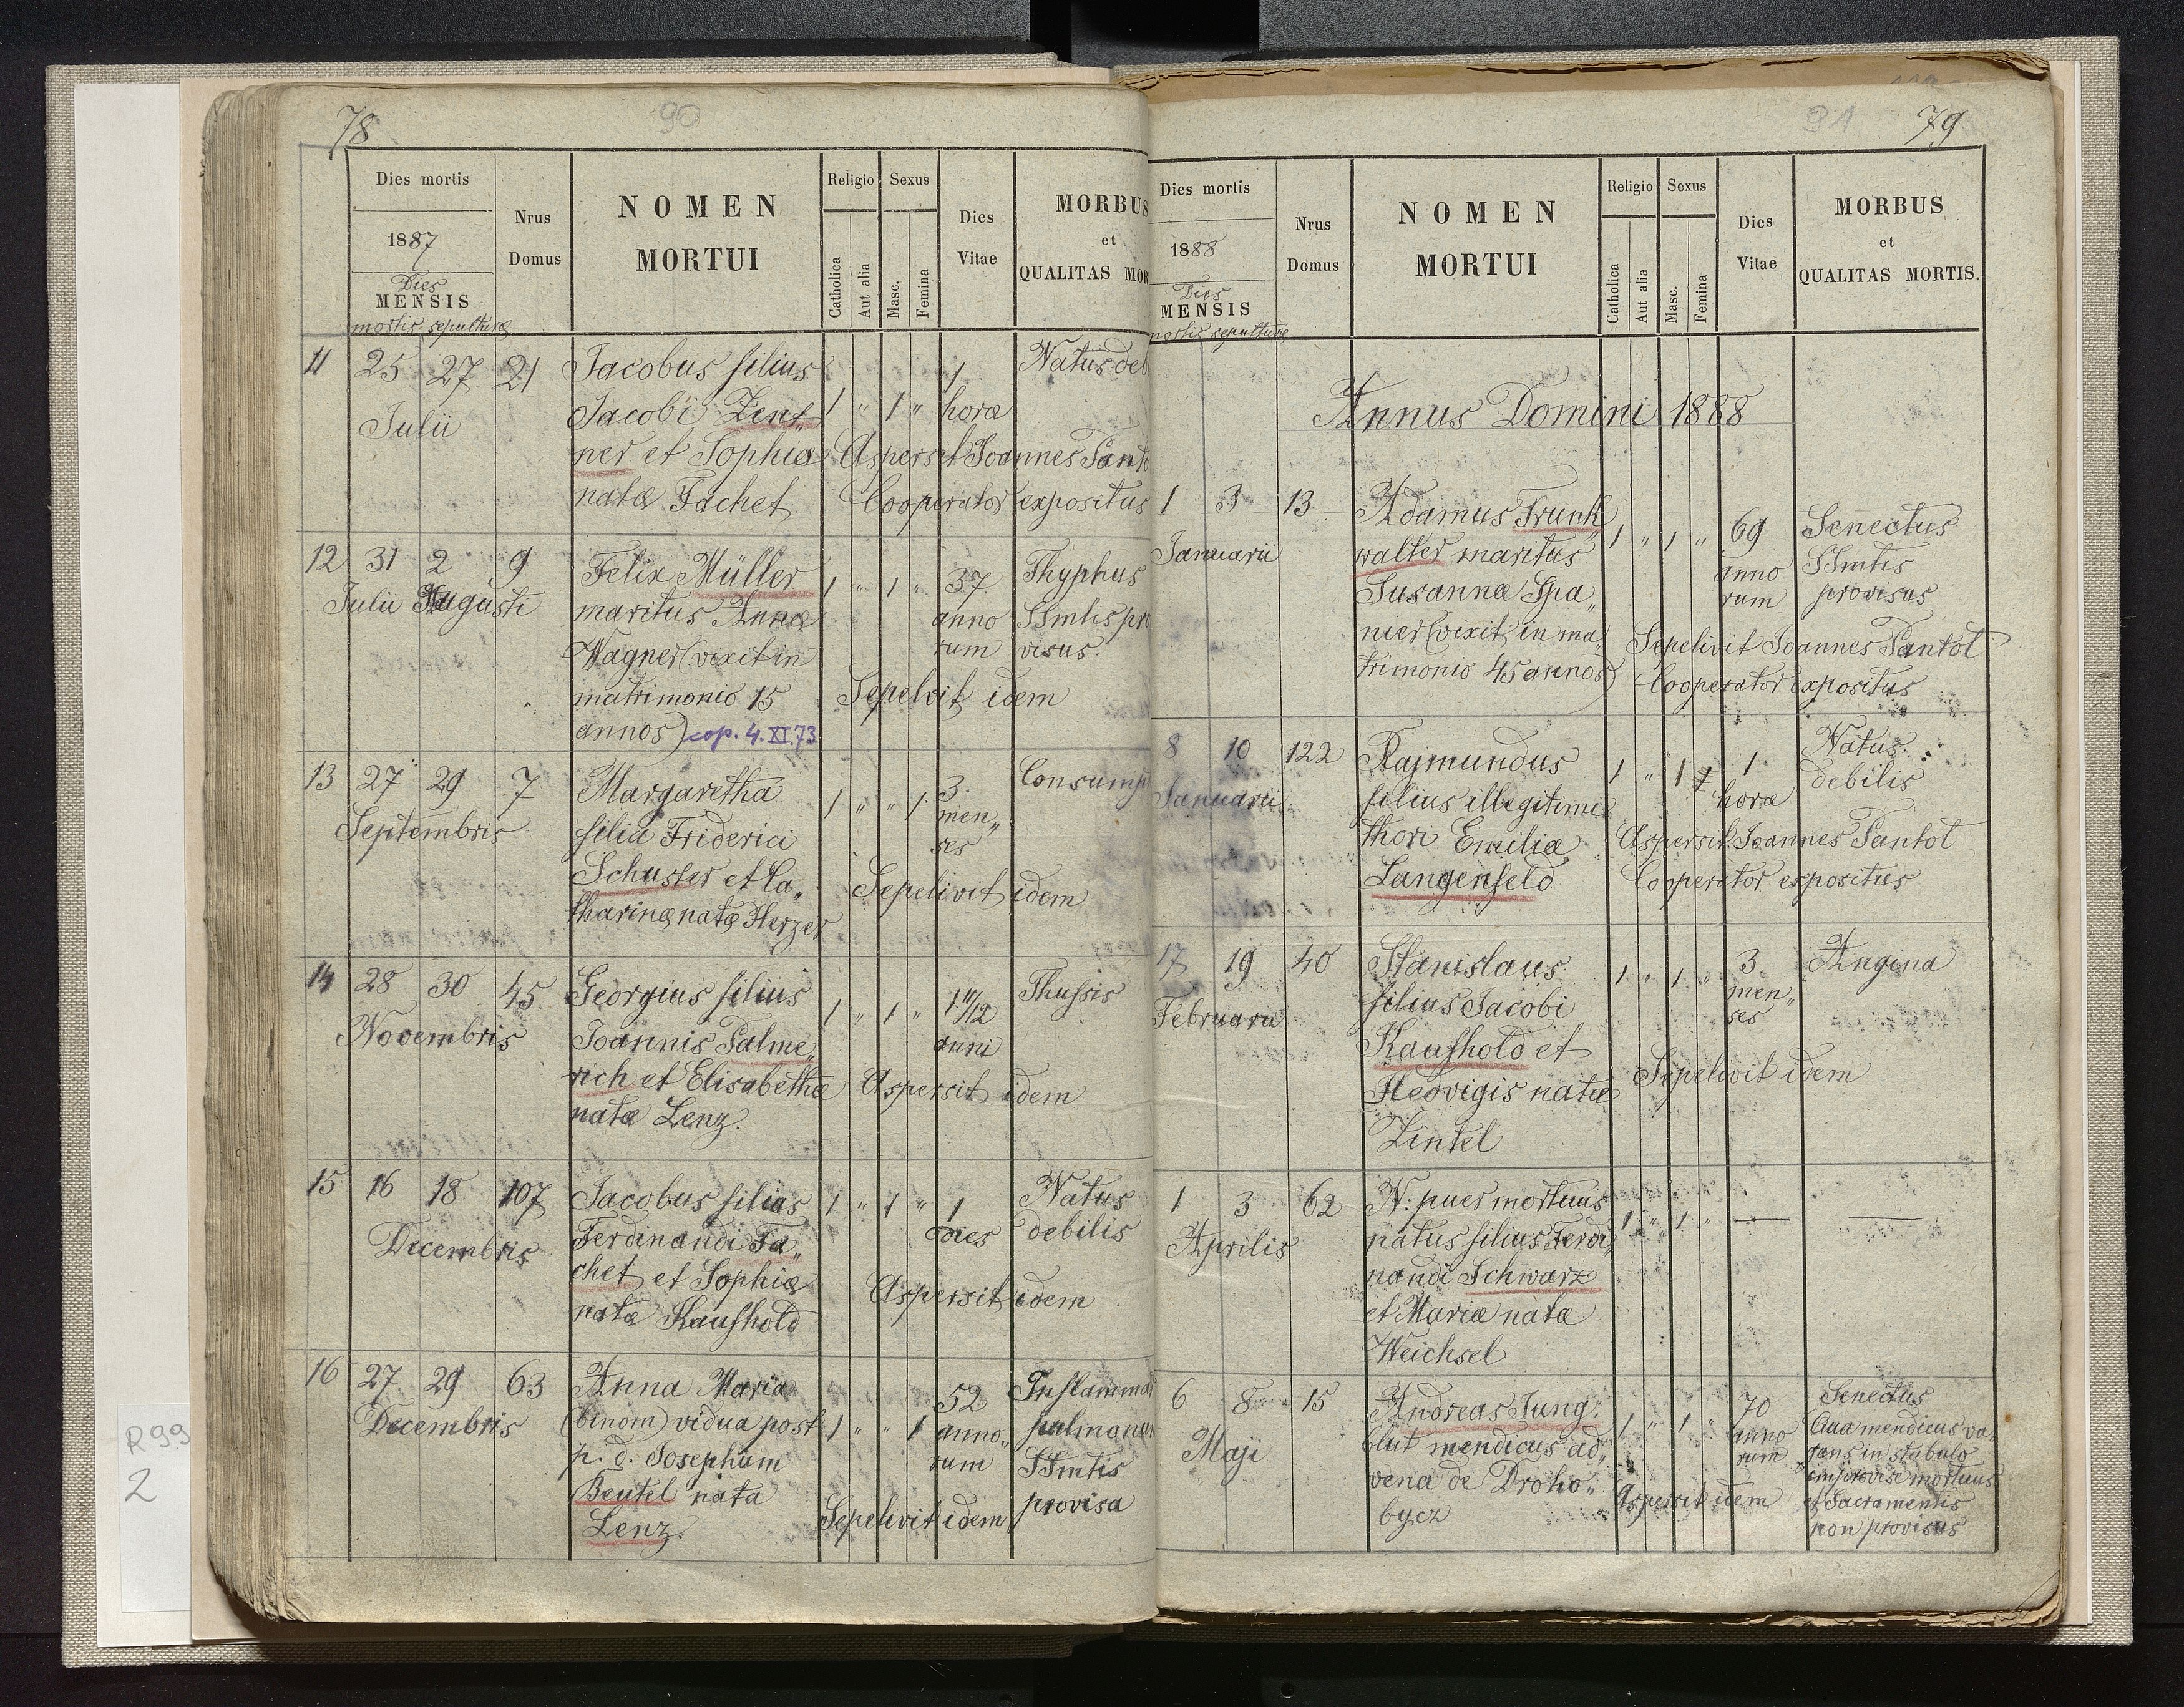 78
90
Dies mortis
1887
Dies
MENSIS
mortis sepulturæ
Nrus
Domus
NOMEN
MORTUI
Religio
Catholica
Aut alia
Sexus
Masc.
Femina
Dies
Vitae
MORBUS
et
QUALITAS MOR
11 25 27 21
Julii
Jacobus filius
Jacobi Zent„
ner et Sophiæ
natæ Fachet
1 „ 1 „
1
horæ
Natus deb
Aspersit Joannes
Cooperator expositus
12 31 2 9
Julii Augusti
Felix Müller
maritus Annæ
Wagner (vixit in
matrimonio 15
annos) cop. 4. XI.73
1 „ 1 „
37
anno
rum
Thyphus
SSmtis pro
visus.
Sepelivit idem
13 27 29 7
Septembris
Margaretha
filia Friderici
Schuster et Ca„
tharinæ natæ Herzer
1 „ „ 1
3
men„
ses
Consump
Sepelivit idem
14 28 30 45
Novembris
Georgius filius
Joannis Salme„
rich et Elisabethæ
natæ Lenz.
1 „ 1 „
1 11/12
anni
Thussis
Aspersit idem
15 16 18 107
Decembris
Jacobus filius
Ferdinandi Fa„
chet et Sophiæ
natæ Kaufhold
1 „ 1 „
1
dies
Natus
debilis
Aspersit idem
16 27 29 63
Decembris
Anna Maria
(binom) vidua post
p. d. Josephum
Beutel nata
Lenz.
1 „ „ 1
52
anno„
rum
Inflammat
pulmonum
SSmtis
provisa
Sepelivit idem
R99
2
91
79
Dies mortis
1888
Dies
MENSIS
mortis sepulturæ
Nrus
Domus
NOMEN
MORTUI
Religio
Catholica
Aut alia
Sexus
Masc.
Femina
Dies
Vitae
MORBUS
et
QUALITAS MORTIS.
Annus Domini 1888
1 3 13
Januarii
Adamus Trunk„
walter maritus
Susannæ Spa„
nier (vixit in ma„
trimonio 45 annos)
1 „ 1 „
69
anno
rum
Senectus
SSmtis
provisus
Sepelivit Joannes Pantol
Cooperator expositus
8 10 122
Januarii
Rajmundus
filius illegitimi
thori Emiliæ
Langenfeld
1 „ 1
1
horæ
Natus
debilis
Aspersit Joannes Pantol
Cooperator expositus
17 19 40
Februarii
Stanislaus
filius Jacobi
Kaufhold et
Hedvigis natæ
Zintel
1 „ 1 „
3
men„
ses
Angina
Sepelivit idem
1 3 62
Aprilis
N: puer mortuus
natus filius Ferdi„
nandi Schwarz
et Mariæ natæ
Weichsel
1 „ 1 „ — —
6 8 15
Maji
Andreas Jung„
blut mendicus ad„
vena de Droho„
bycz
1 „ 1 „
70
anno
rum
Senectus
Qua mendicus va„
gans in stabulo
improvise mortuus
et Sacramentis
non provisus
Aspersit idem